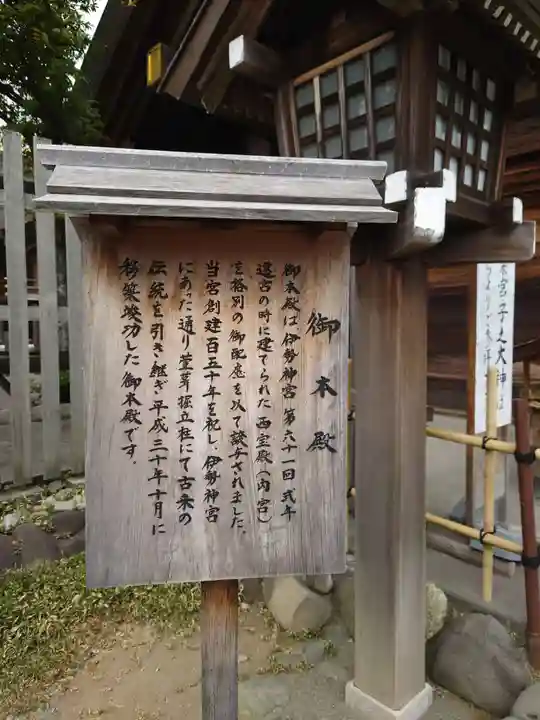 御本殿
御本殿は、伊勢神宮第六十一回式年
遷宮の時に建てられた西宝殿(内宮)
を格別の御配慮を以て譲与されました。
当宮創建百五十年を祝し、伊勢神宮
にあった通り萱葺掘立柱にて古来の
伝統を引き継ぎ平成三十年十月に
移築竣功した御本殿です。
宮子之大神は